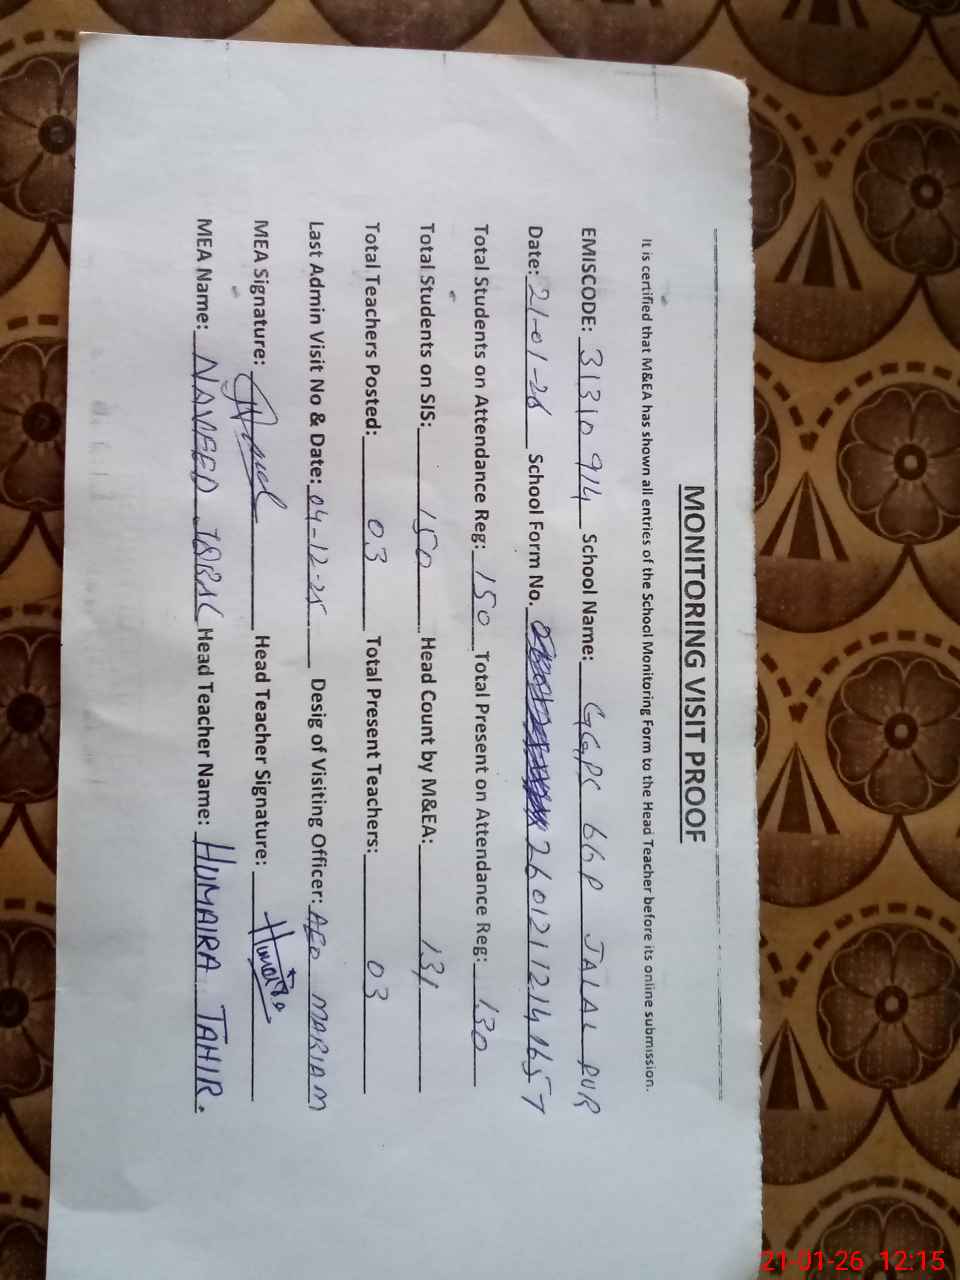 MONITORING VISIT PROOF
It is certified that M&EA has shown all entries of the School Monitoring Form to the Head Teacher before its online submission.
EMISCODE: 31310914 School Name: GGPS 66P JALAL PUR
Date: 21-01-26 School Form No. 26012112141657
Total Students on Attendance Reg: 150 Total Present on Attendance Reg: 130
Total Students on SIS: 150 Head Count by M&EA: 131
Total Teachers Posted: 03 Total Present Teachers: 03
Last Admin Visit No & Date: 04-12-25 Desig of Visiting Officer: AEO MARIAM
MEA Signature: Head Teacher Signature: Humaira
MEA Name: NAVEED Head Teacher Name: HUMAIRA TAHIR.
21-01-26 12:15